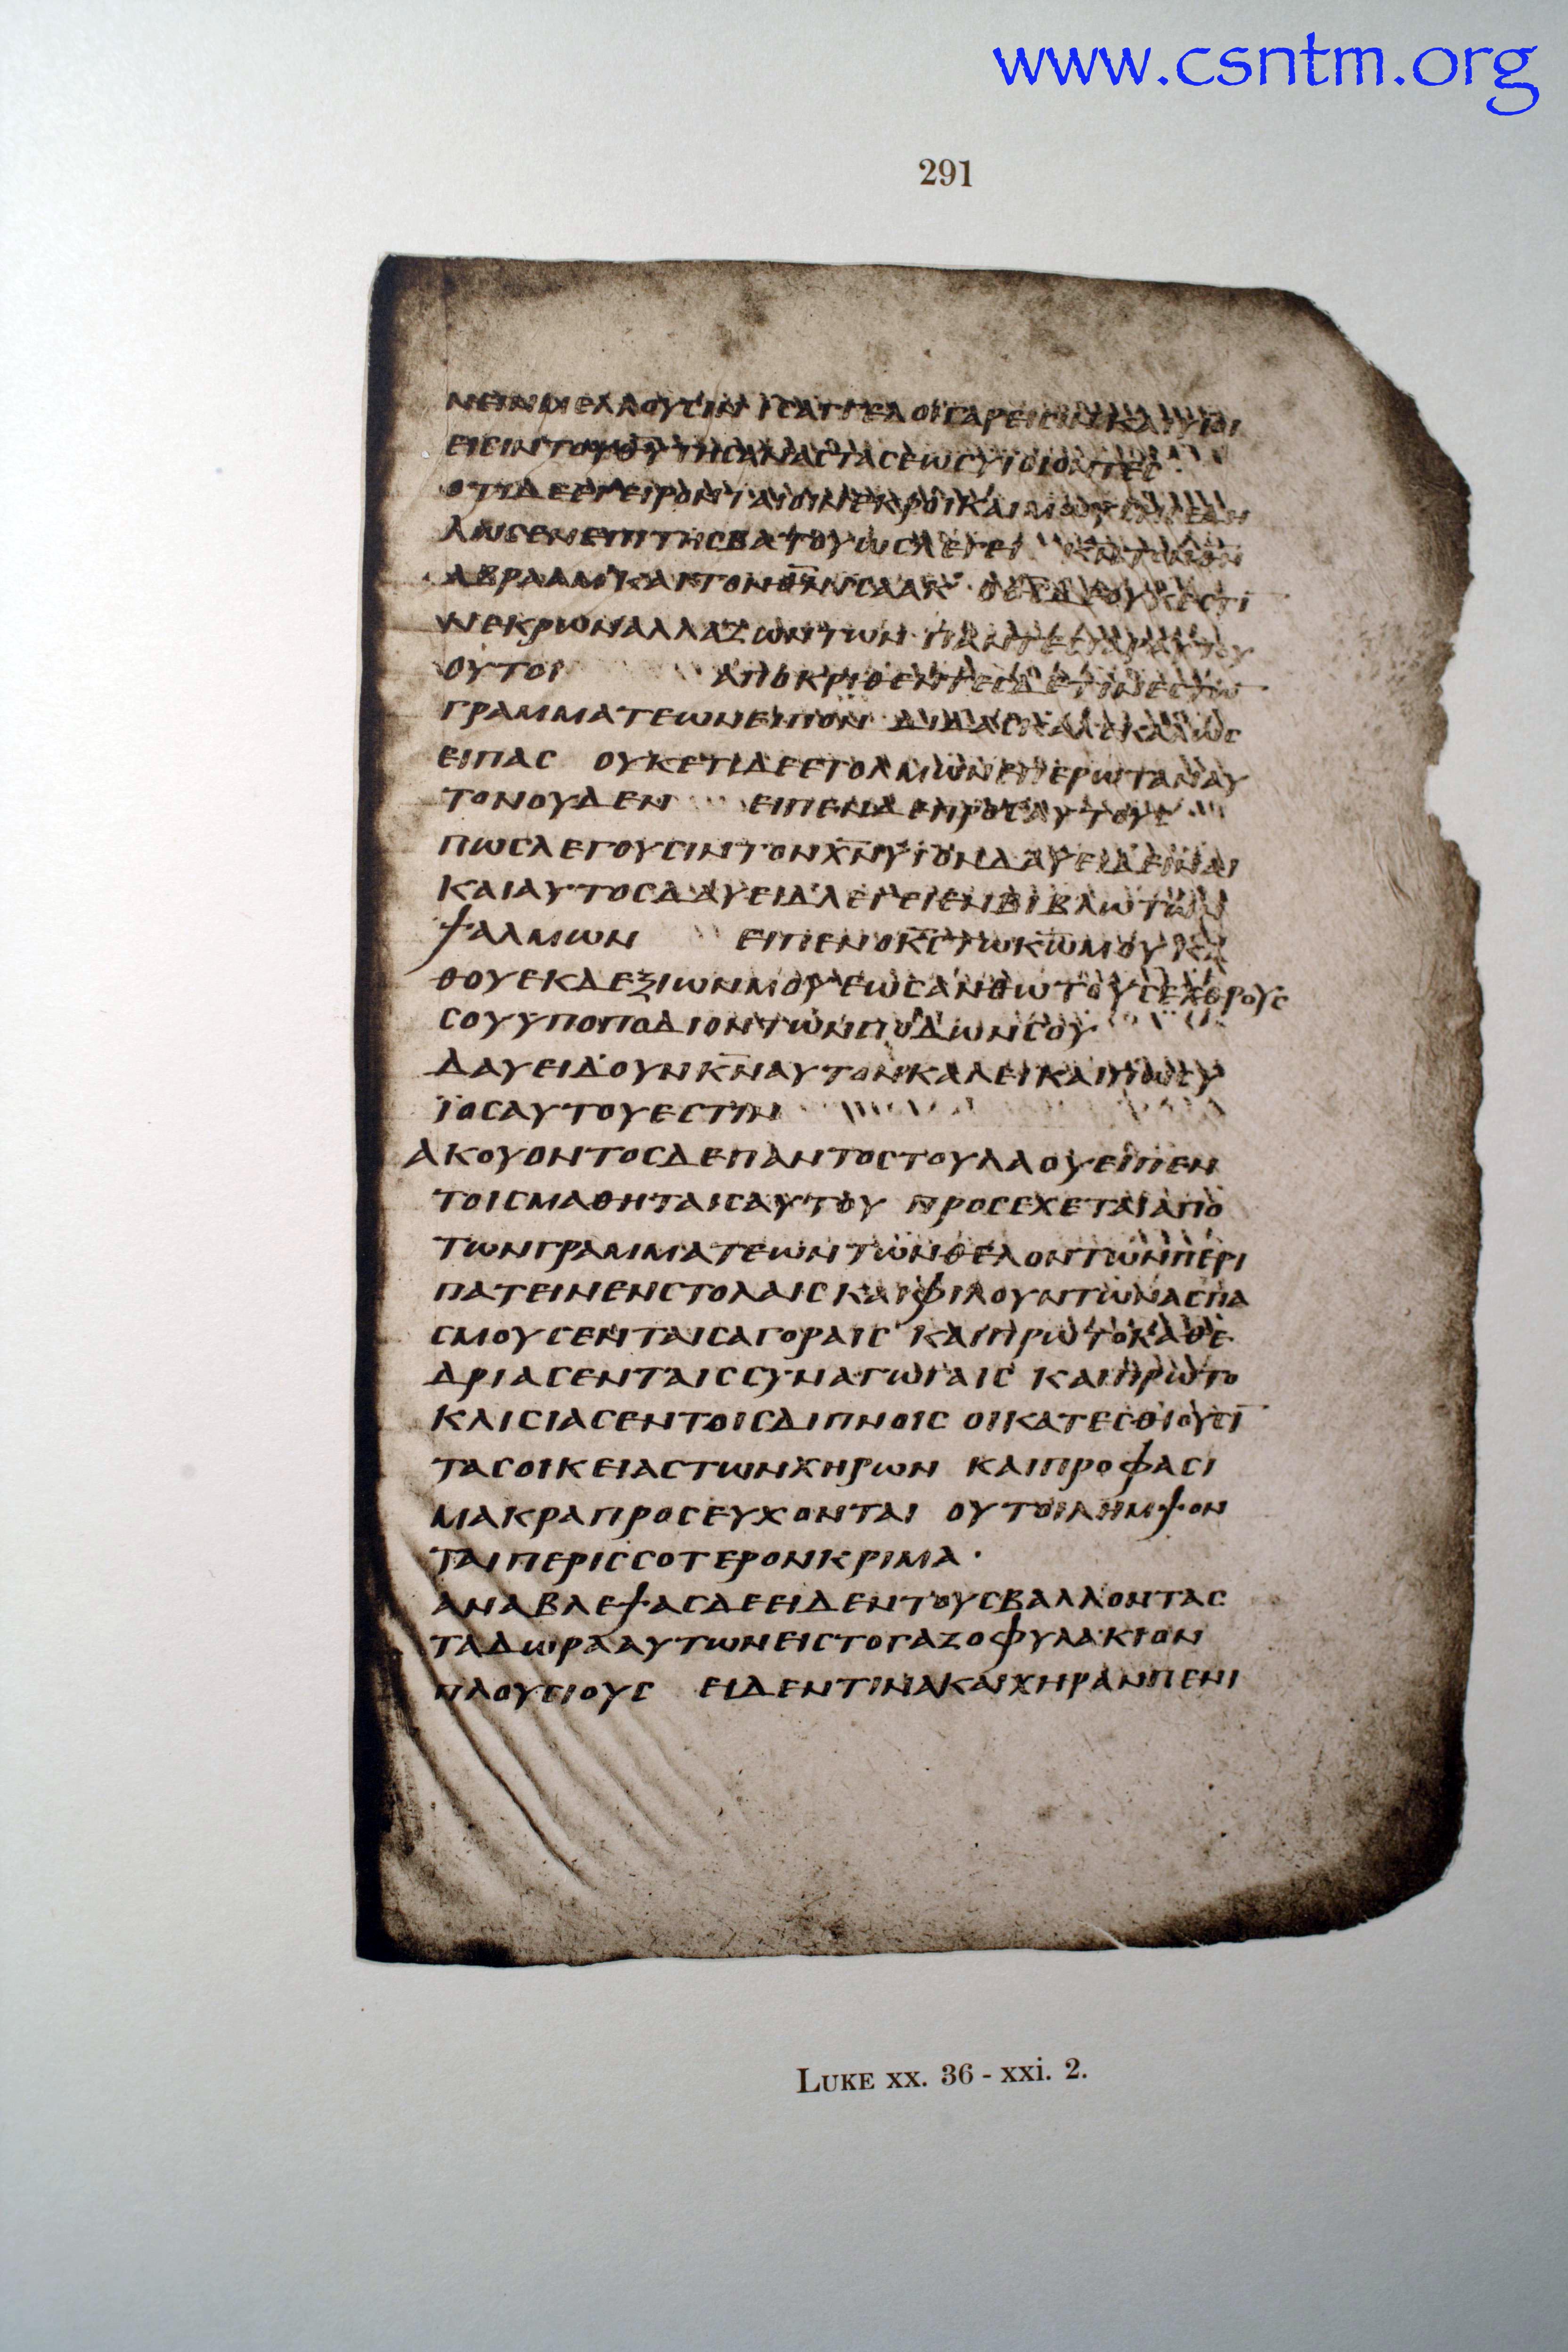 www.csntm.org
291
ΝΕΙΝΜΕΛΛΟΥϹΙΝ ΙϹΑΓΓΕΛΟΙΓΑΡΕΙϹΙΝΚΑΙΥΙΟΙ
ΕΙϹΙΝΤΟΥΘ̅Υ̅ΤΗϹΑΝΑϹΤΑϹΕΩϹΥΙΟΙΟΝΤΕϹ
ΟΤΙΔΕΕΓΕΙΡΟΝΤΑΙΟΙΝΕΚΡΟΙΚΑΙΜΩΥϹΗϹ
ΛΩϹΕΝΕΠΙΤΗϹΒΑΤΟΥΩϹΛΕΓΕΙ
ΑΒΡΑΑΜΚΑΙΤΟΝΘ̅Ν̅ΙϹΑΑΚ ΟΥΚΕϹΤΙ̅
ΝΕΚΡΩΝΑΛΛΑΖΩΝΤΩΝ ΠΑΝΤΕϹΓΑΡΑΥΤΟΥ
ΟΥΤΟΙ ΑΠΟΚΡΙΘΕΝΤΕϹΔΕΤΙΝΕϹΤΩ̅
ΓΡΑΜΜΑΤΕΩΝΕΙΠΟΝ ΔΙΔΑϹΚΑΛΕΚΑΛΩϹ
ΕΙΠΑϹ ΟΥΚΕΤΙΔΕΕΤΟΛΜΩΝΕΠΕΡΩΤΑΝΑΥ
ΤΟΝΟΥΔΕΝ ΕΙΠΕΝΔΕΠΡΟϹΑΥΤΟΥϹ
ΠΩϹΛΕΓΟΥϹΙΝΤΟΝΧ̅Ν̅ΥΙΟΝΔΑΥΕΙΔΕΙΝΑΙ
ΚΑΙΑΥΤΟϹΔΑΥΕΙΔΛΕΓΕΙΕΝΒΙΒΛΩΤΩΝ
ΨΑΛΜΩΝ ΕΙΠΕΝΟΚ̅Ϲ̅ΤΩΚ̅Ω̅ΜΟΥΚΑ
ΘΟΥΕΚΔΕΞΙΩΝΜΟΥΕΩϹΑΝΘΩΤΟΥϹΕΧΘΡΟΥϹ
ϹΟΥΥΠΟΠΟΔΙΟΝΤΩΝΠΟΔΩΝϹΟΥ
ΔΑΥΕΙΔΟΥΝΚ̅Ν̅ΑΥΤΟΝΚΑΛΕΙΚΑΙΠΩϹΥ
ΪΟϹΑΥΤΟΥΕϹΤΙΝ
ΑΚΟΥΟΝΤΟϹΔΕΠΑΝΤΟϹΤΟΥΛΑΟΥΕΙΠΕΝ
ΤΟΙϹΜΑΘΗΤΑΙϹΑΥΤΟΥ ΠΡΟϹΕΧΕΤΑΙΑΠΟ
ΤΩΝΓΡΑΜΜΑΤΕΩΝΤΩΝΘΕΛΟΝΤΩΝΠΕΡΙ
ΠΑΤΕΙΝΕΝϹΤΟΛΑΙϹΚΑΙΦΙΛΟΥΝΤΩΝΑϹΠΑ
ϹΜΟΥϹΕΝΤΑΙϹΑΓΟΡΑΙϹ ΚΑΙΠΡΩΤΟΚΑΘΕ
ΔΡΙΑϹΕΝΤΑΙϹϹΥΝΑΓΩΓΑΙϹ ΚΑΙΠΡΩΤΟ
ΚΛΙϹΙΑϹΕΝΤΟΙϹΔΙΠΝΟΙϹ ΟΙΚΑΤΕϹΘΙΟΥϹΙ̅
ΤΑϹΟΙΚΕΙΑϹΤΩΝΧΗΡΩΝ ΚΑΙΠΡΟΦΑϹΙ
ΜΑΚΡΑΠΡΟϹΕΥΧΟΝΤΑΙ ΟΥΤΟΙΛΗΜΨΟΝ
ΤΑΙΠΕΡΙϹϹΟΤΕΡΟΝΚΡΙΜΑ·
ΑΝΑΒΛΕΨΑϹΔΕΕΙΔΕΝΤΟΥϹΒΑΛΛΟΝΤΑϹ
ΤΑΔΩΡΑΑΥΤΩΝΕΙϹΤΟΓΑΖΟΦΥΛΑΚΙΟΝ
ΠΛΟΥϹΙΟΥϹ ΕΙΔΕΝΤΙΝΑΚΑΙΧΗΡΑΝΠΕΝΙ
LUKE xx. 36 - xxi. 2.